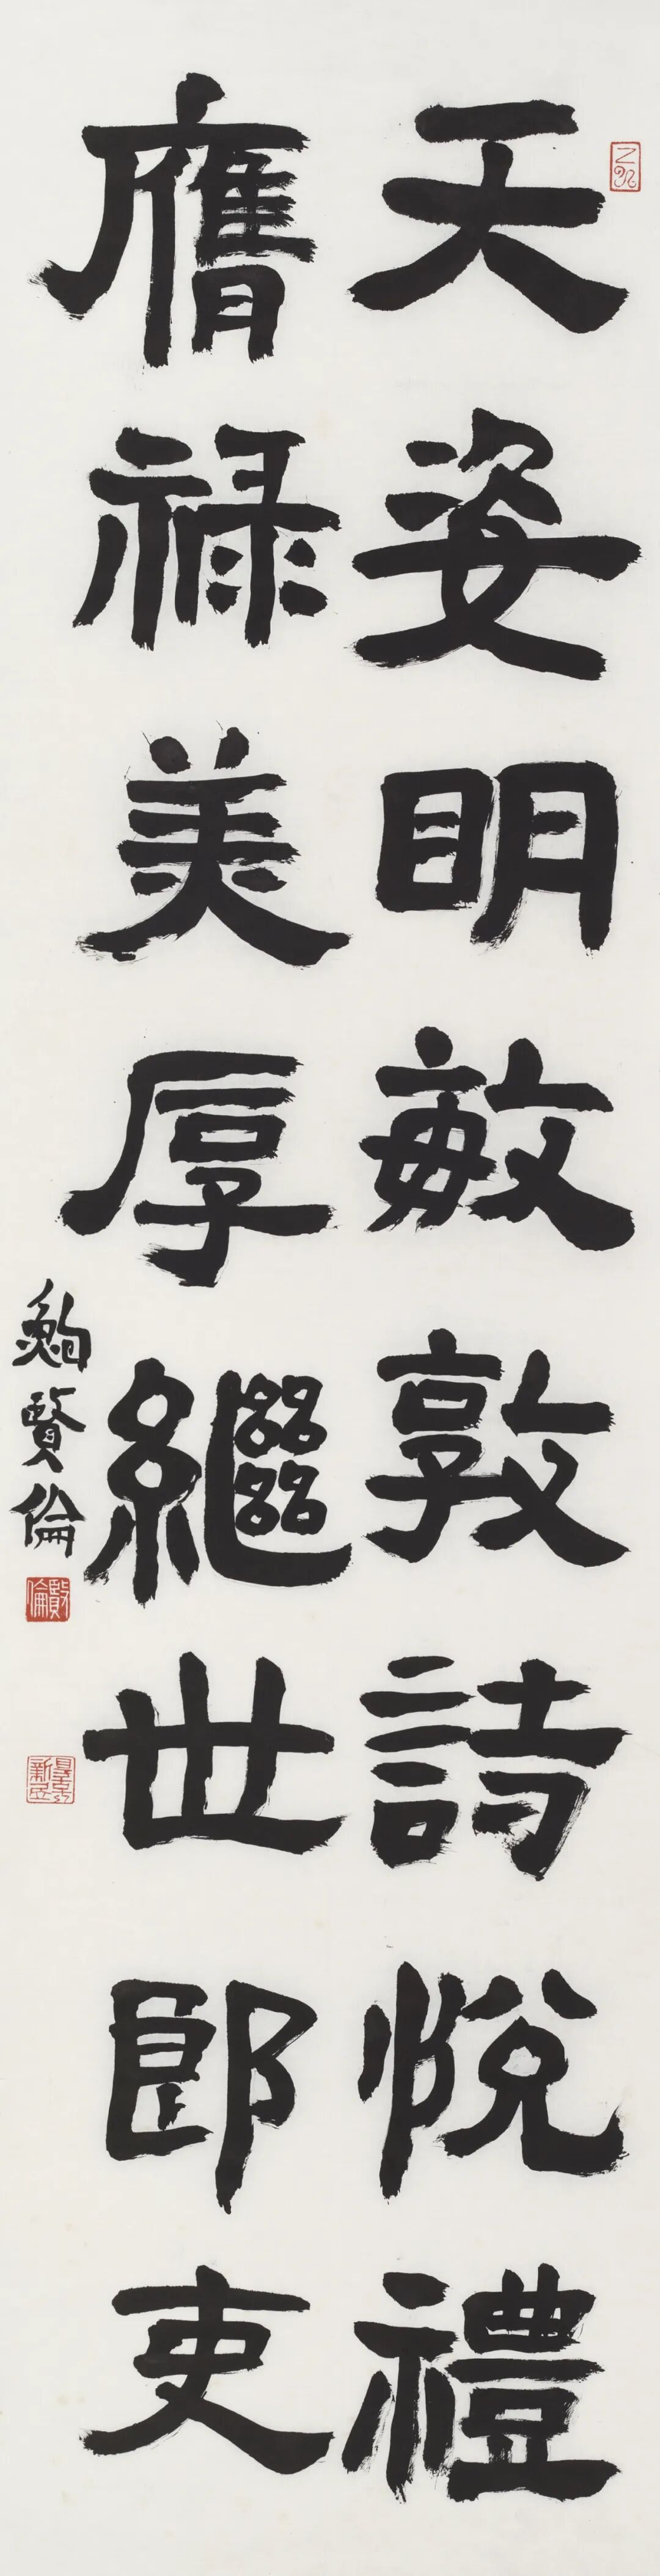 天姿明敏敦詩悅禮
膺祿美厚繼世郎吏
鮑賢倫
賢倫